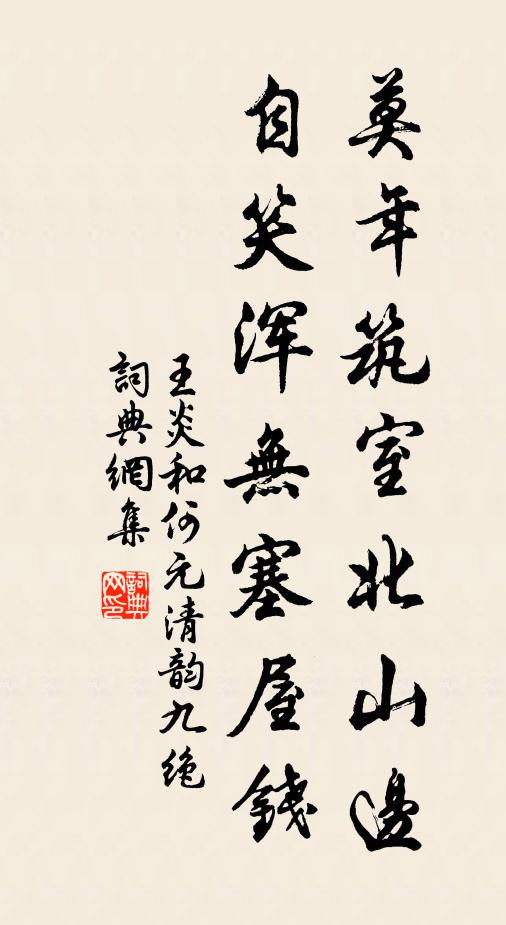 莫年筑室北山邊
自笑浑無塞屋錢
王炎和何元清韵九绝
詞典網集
詞典网印